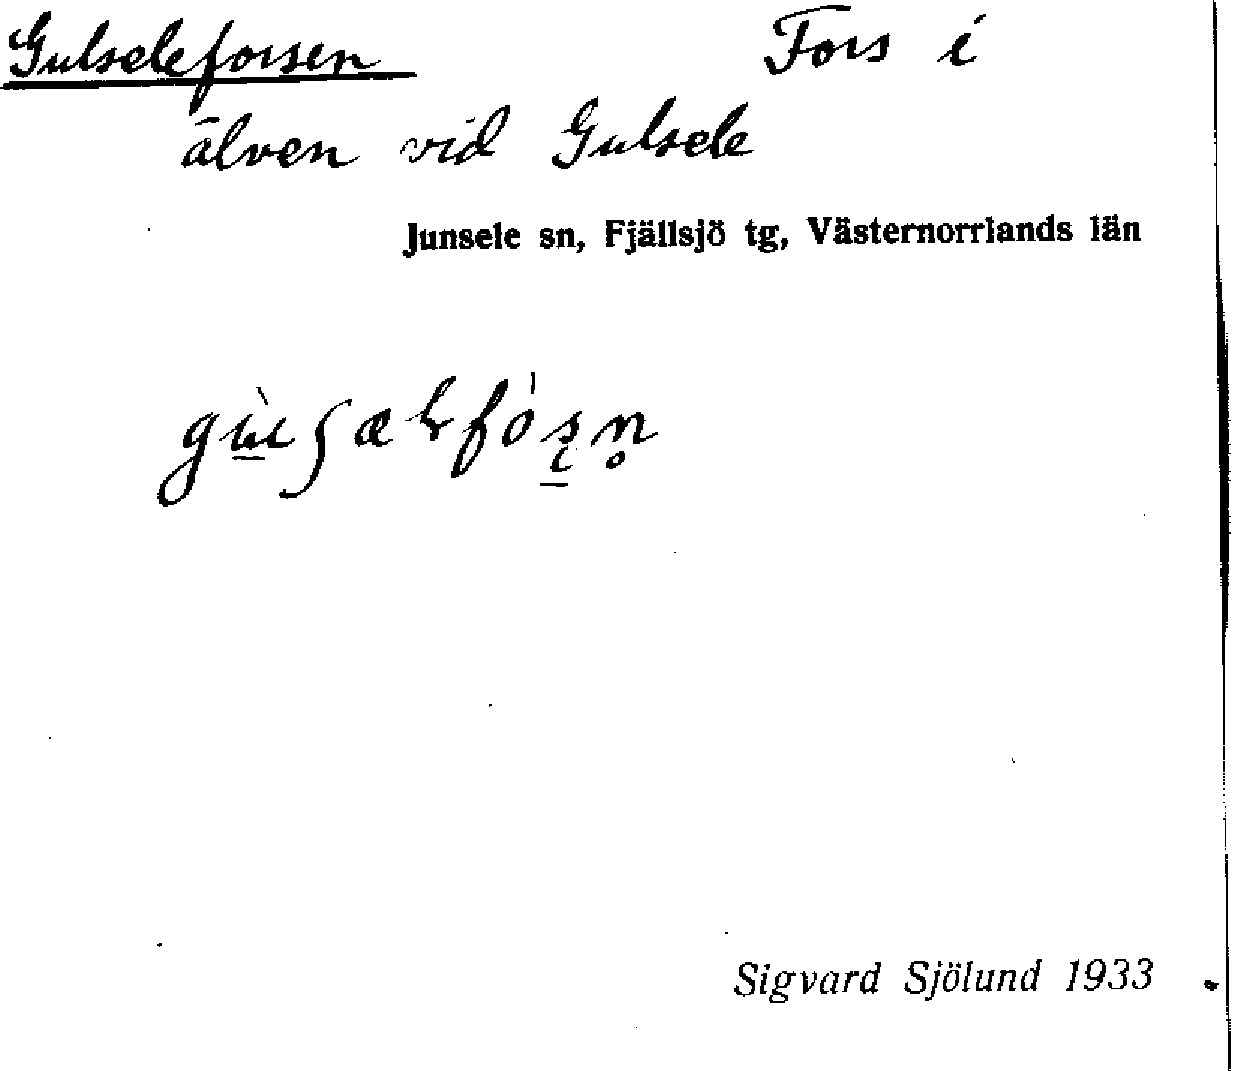 Gulseleforsen Fors i
älven vid Gulsele
Junsele sn, Fjällsjö tg, Västernorrlands län
Sigvard Sjölund 1933